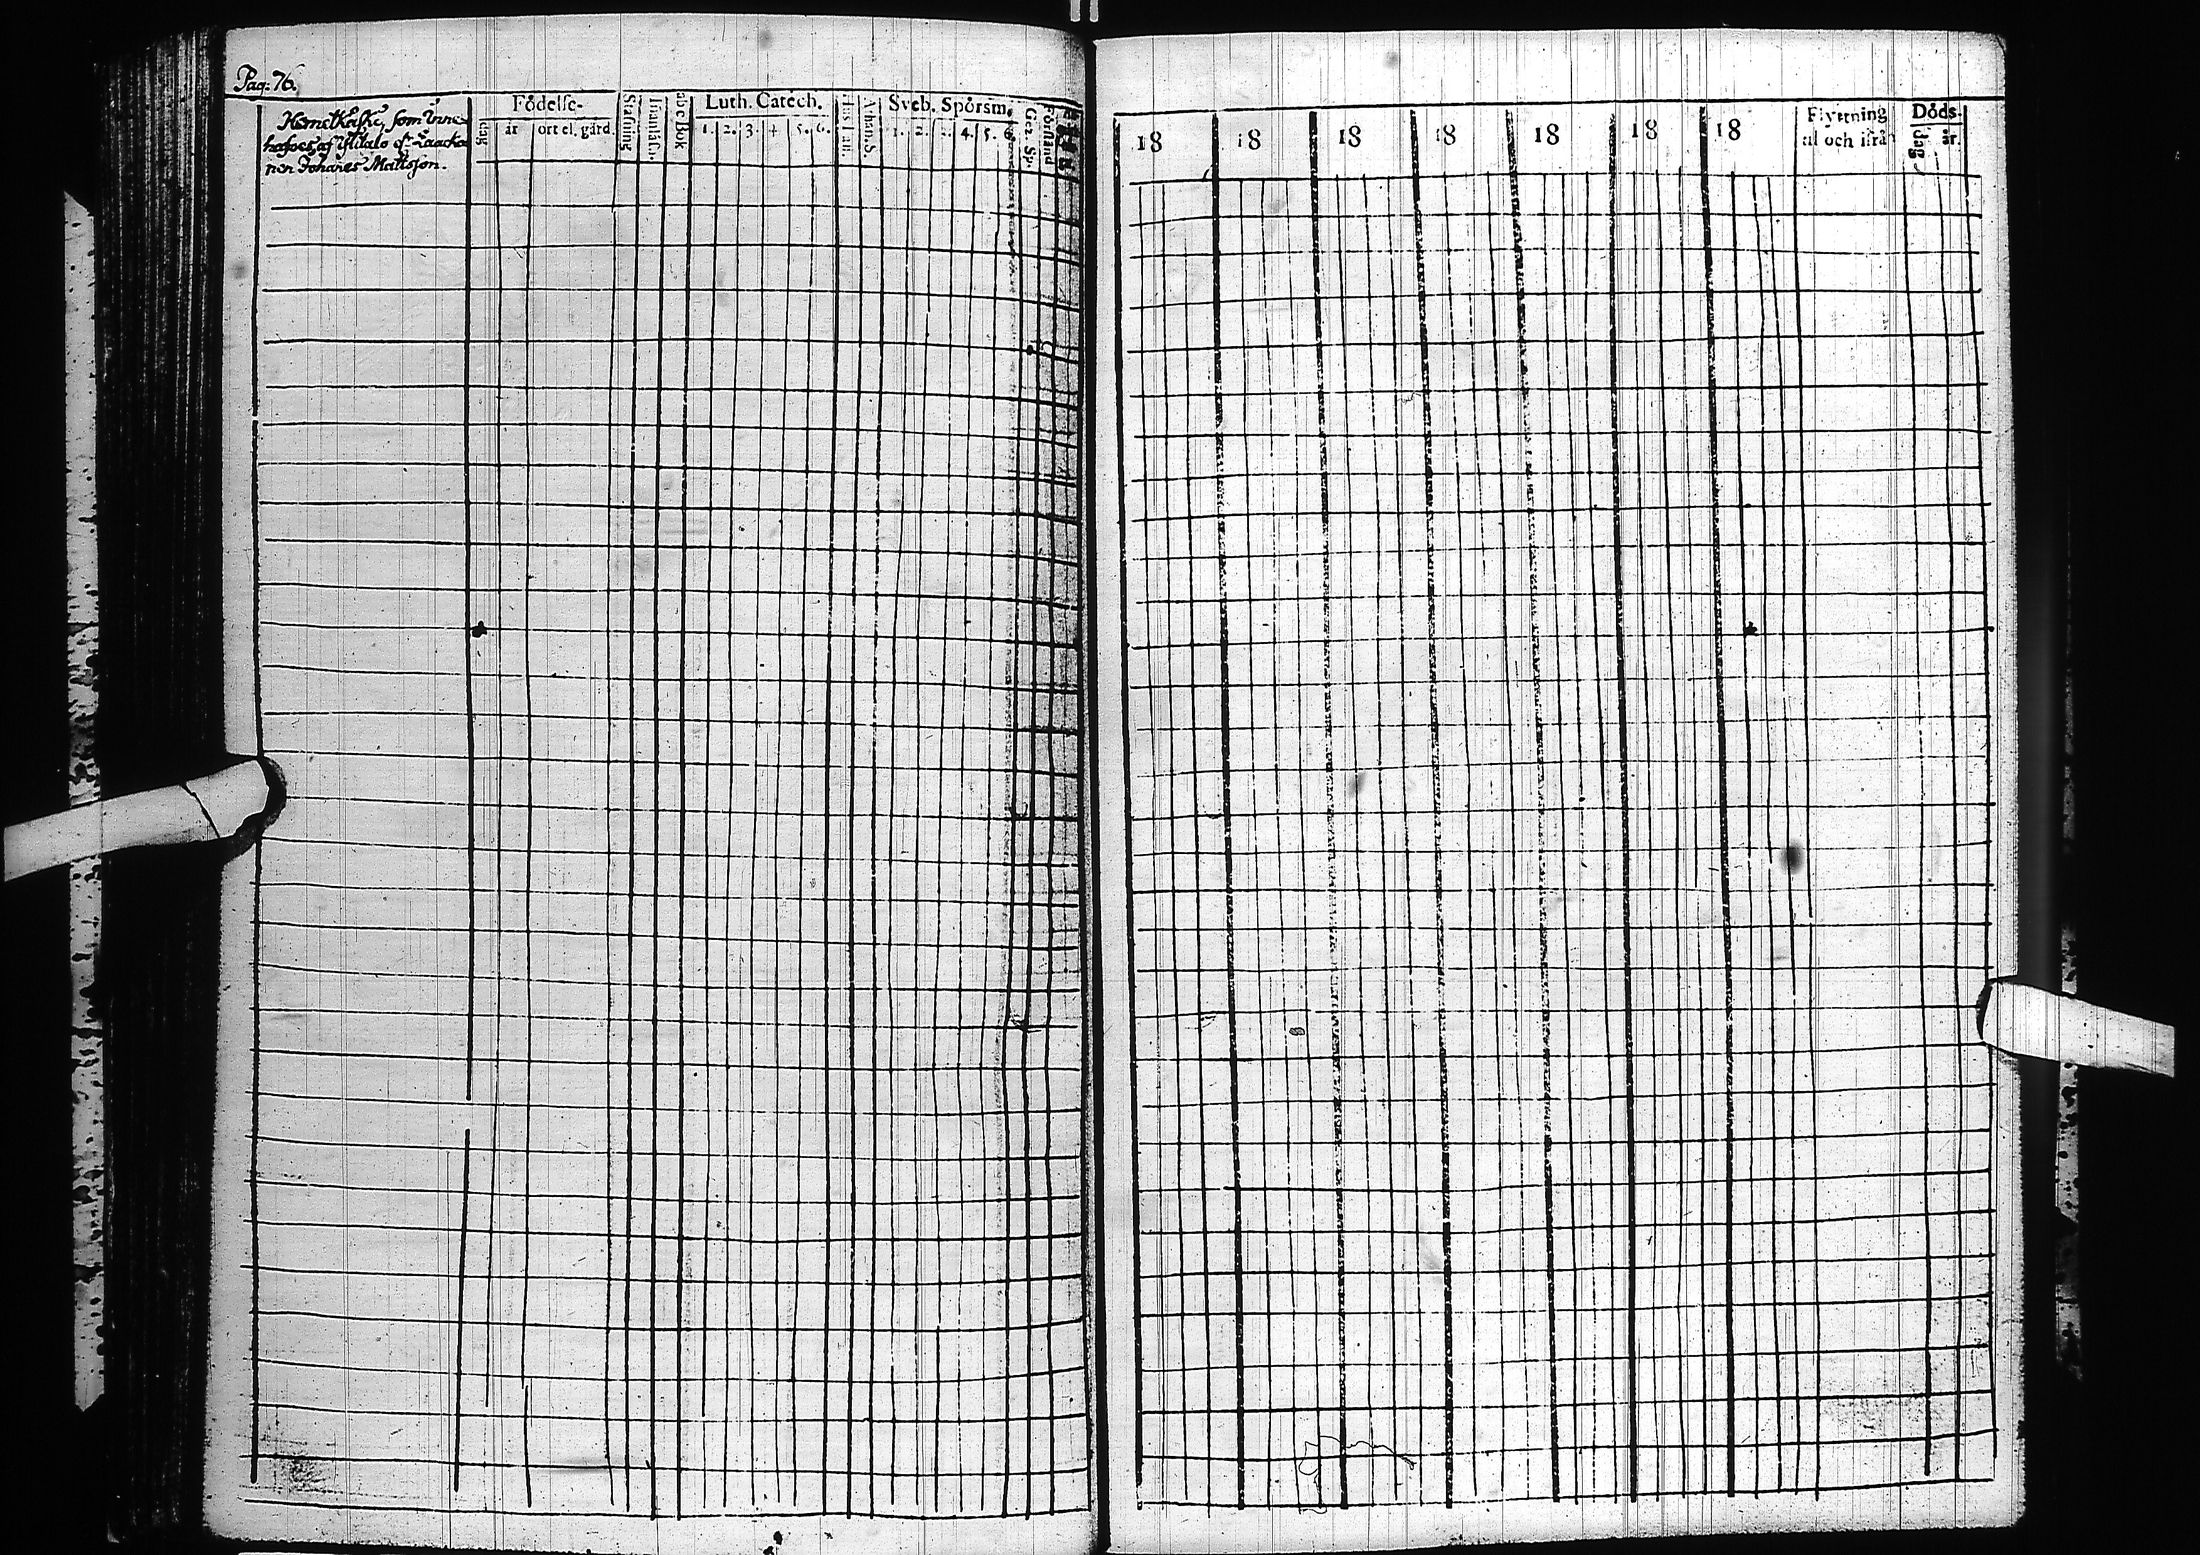 Pag. 76.
som inne-
hafves af Ylitalo
nen Johanes Mattsson.
Födelse-
dag
år
ort el. gård.
Stafning
Innanläsn.
abc Bok
Luth. Catech.
1. 2. 3. 4. 5. 6.
Athan. S.
Sveb. Spörsm.
1. 2. 3. 4. 5. 6.
Ger. Sp.
Förstånd
18 18 18 18 18 18 18
Flyttning
til och ifrån
Döds-
dag
år.